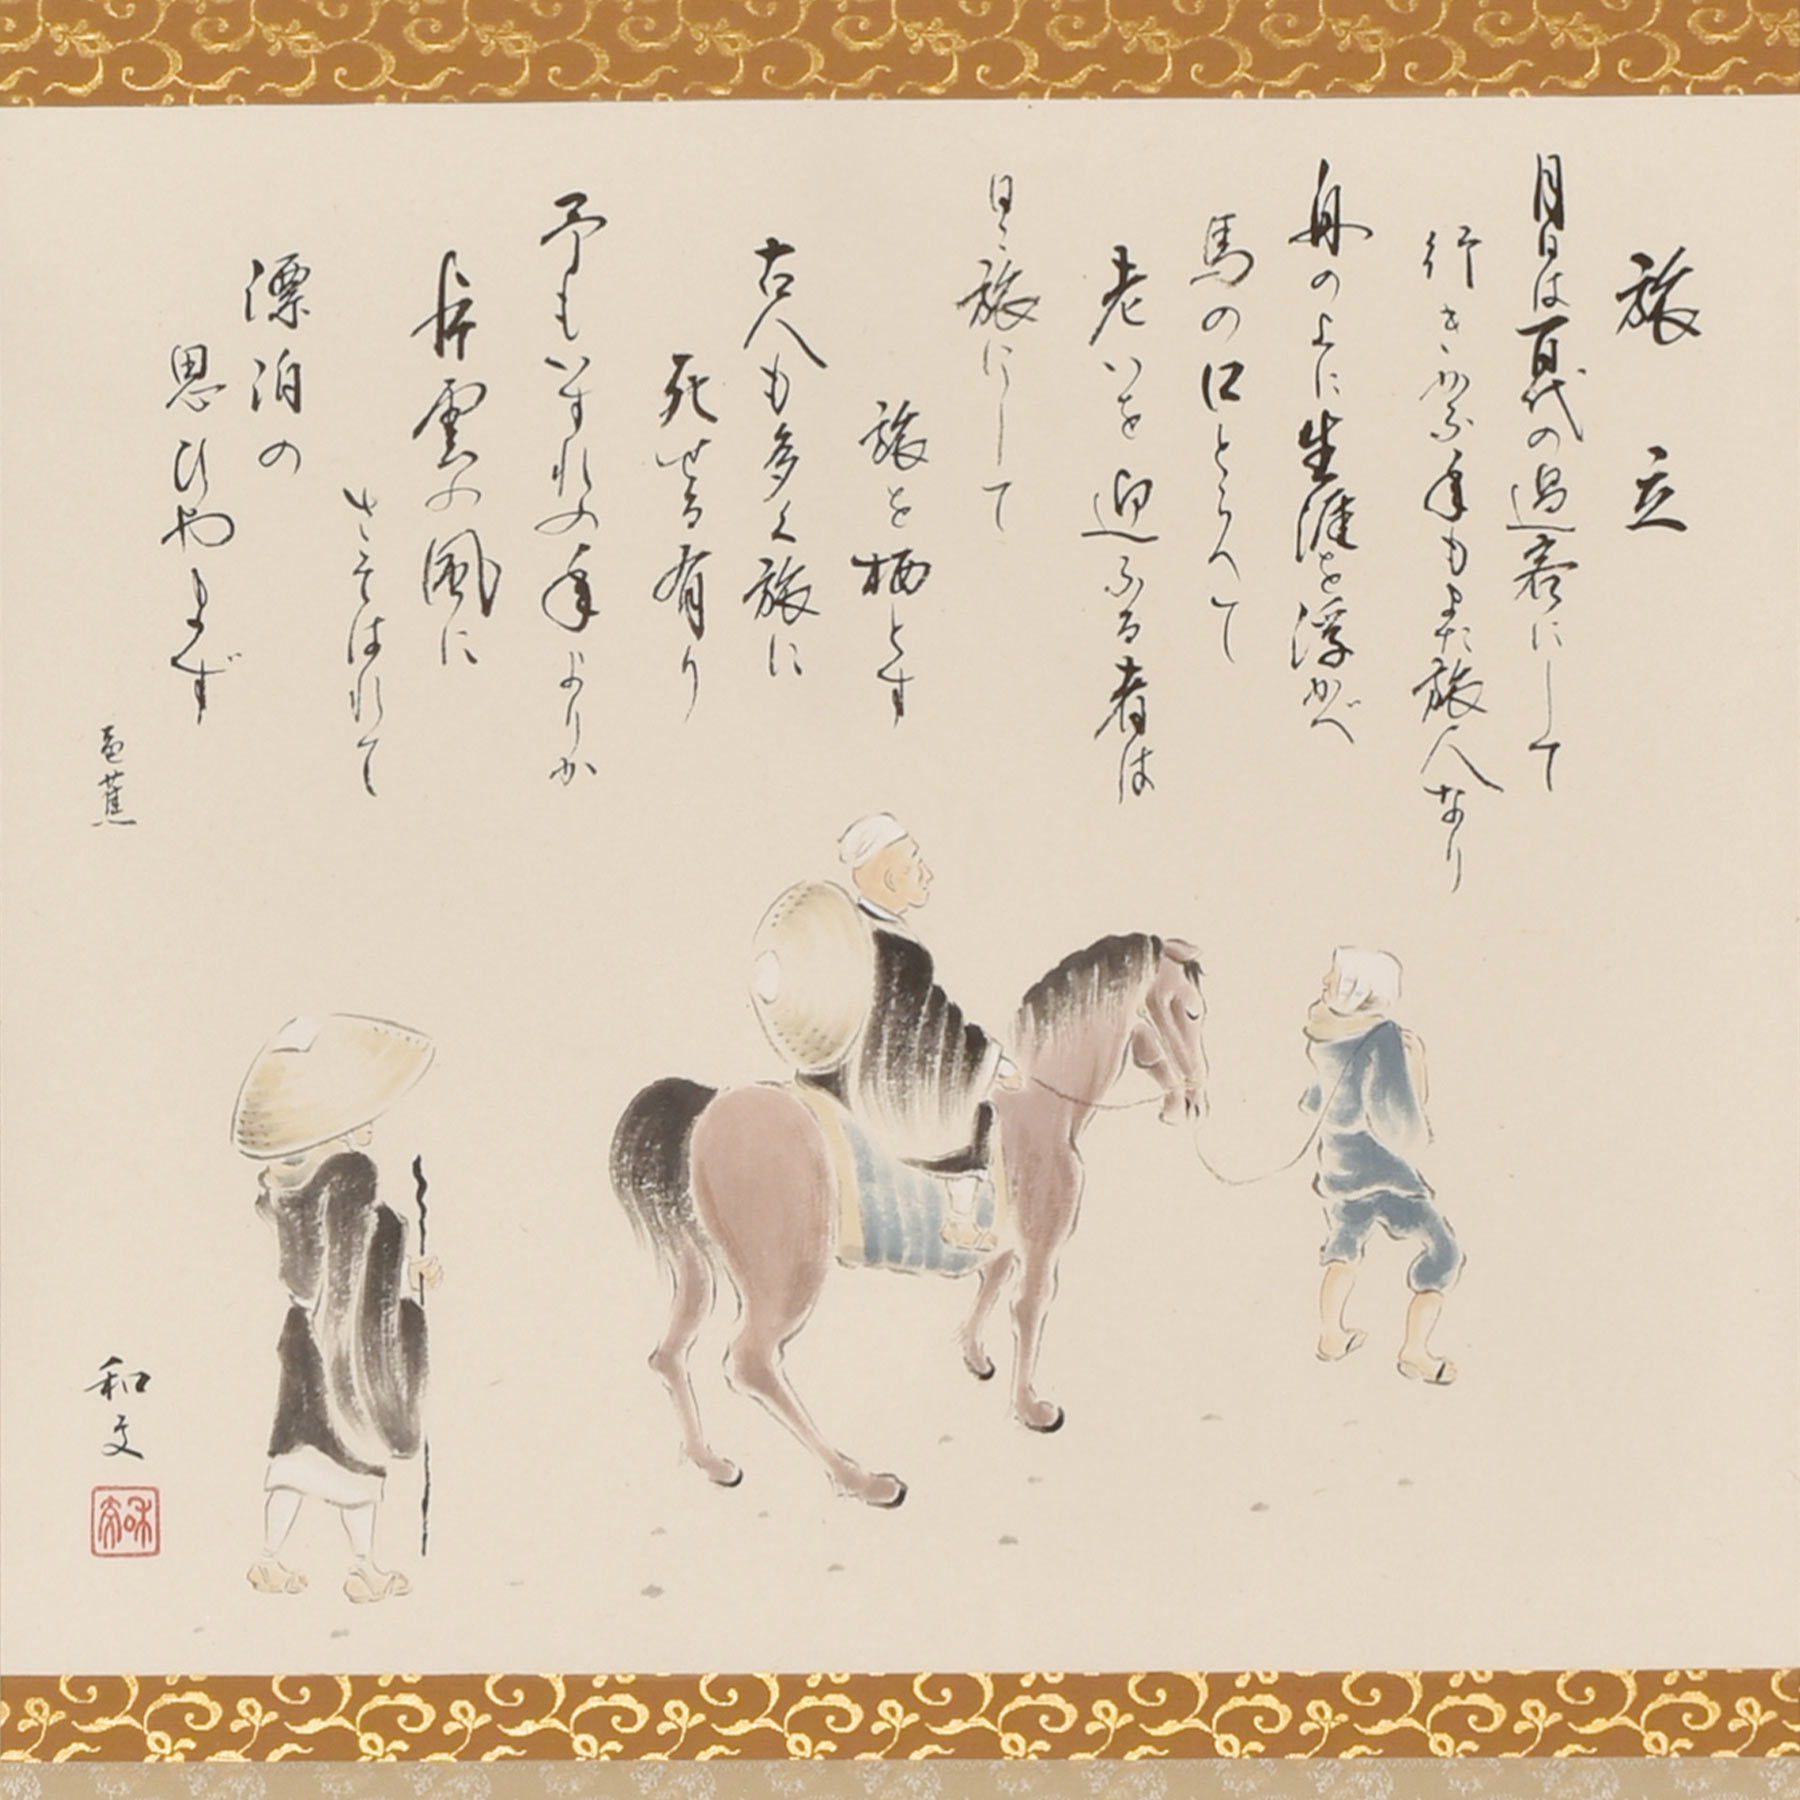 旅立
月日は百代の過客にして
行きかふ年もまた旅人なり
舟の上に生涯を浮かべ
馬の口とらへて
老いを迎ふる者は
日々旅にして
旅を栖とす
古人も多く旅に
死せる有り
予もいずれの年よりか
片雲の風に
さそはれて
漂泊の
思ひやまず
芭蕉
和文